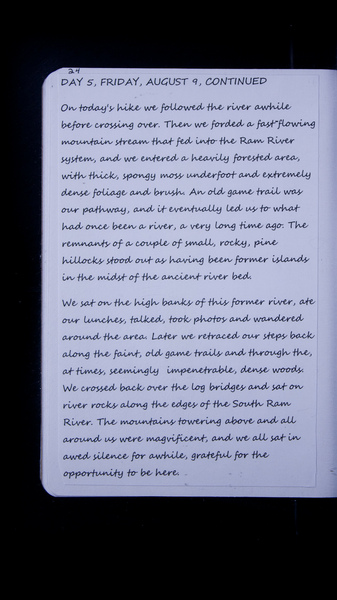 24
DAY 5, FRIDAY, AUGUST 9, CONTINUED
On today's hike we followed the river awhile
before crossing over. Then we forded a fast flowing
mountain stream that fed into the Ram River
system, and we entered a heavily forested area,
with thick, spongy moss underfoot and extremely
dense foliage and brush. An old game trail was
our pathway, and it eventually led us to what
had once been a river, a very long time ago. The
remnants of a couple of small, rocky, pine
hillocks stood out as having been former islands
in the midst of the ancient river bed.
We sat on the high banks of this former river, ate
our lunches, talked, took photos and wandered
around the area. Later we retraced our steps back
along the faint, old game trails and through the,
at times, seemingly impenetrable, dense woods.
We crossed back over the log bridges and sat on
river rocks along the edges of the South Ram
River. The mountains towering above and all
around us were magvificent, and we all sat in
awed silence for awhile, grateful for the
opportunity to be here.